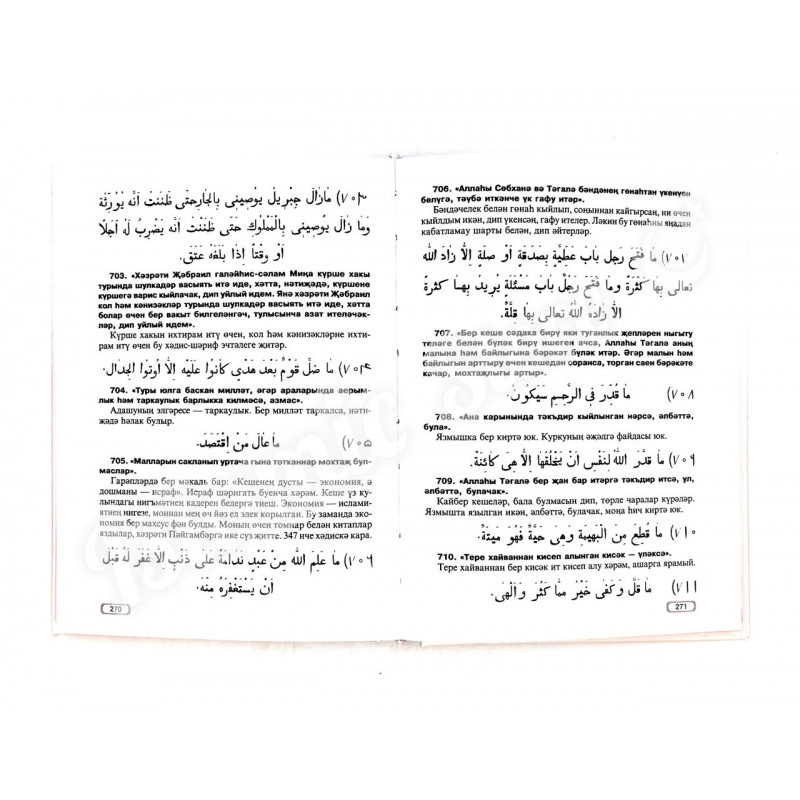 ٧٠٣) مازال جبريل يوصينى بالجارحتى ظننت انه يورثة
وما زال يوصينى بالمملوك حتى ظننت انه يضرب له اجلا
او وقتا اذا بلغه عتق.
703. «Хәзрәти Җәбраил галәйһис-сәлам Миңа күрше хакы
турында шулкадәр васыять итә иде, хәтта, нәтиҗәдә, күршене
күршегә варис кылачак, дип уйлый идем. Янә хәзрәти Җәбраил
кол һәм кәнизәкләр турында шулкадәр васыять итә иде, хәтта
болар өчен бер вакыт билгеләнгәч, тулысынча азат ителәчәк-
ләр, дип уйлый идем».
Күрше хакын ихтирам итү өчен, кол һәм кәнизәкләрне ихти-
рам итү өчен бу хәдис-шәриф эчтәлеге җитәр.
٧٠٤) ما ضل قوم بعد هدى كانوا عليه الا اوتوا الجدال.
704. «Туры юлга баскан милләт, әгәр араларында аерым-
лык һәм таркаулык барлыкка килмәсә, азмас».
Адашуның элгәресе — таркаулык. Бер милләт таркалса, нәти-
җәдә һәлак булыр.
٧٠٥) ما عال من اقتصد.
705. «Малларын сакланып уртача гына тотканнар мохтаҗ бул-
маслар».
Гарәпләрдә бер мәкаль бар: «Кешенең дусты — экономия, ә
дошманы — исраф». Исраф шәригать буенча хәрәм. Кеше үз ку-
лындагы нигъмәтнең кадерен белергә тиеш. Экономия — ислами-
ятнең нигезе, моннан мең өч йөз ел элек корылган. Бу заманда эко-
номия бер махсус фән булды. Моның өчен томнар белән китаплар
яздылар, хәзрәти Пәйгамбәргә ике сүз җитте. 347 нче хәдискә кара.
٧٠٦) ما علم الله من عبد ندامة على ذنب الا غفر له قبل
ان يستغفره منه.
270
706. «Аллаһы Сөбханә вә Тәгалә бәндәнең гөнаһтан үкенүен
белүгә, тәүбә иткәнче үк гафу итәр».
Бәндәчелек белән гөнаһ кылып, соңыннан кайгырсаң, ни өчен
кылдым икән, дип үкенсәң, гафу ителер. Ләкин бу гөнаһны яңадан
кабатламау шарты белән, дип әйтерләр.
٧٠٧) ما فتح رجل باب عطية بصدقة أو صلة الا زاد الله
تعالى بها كثرة وما فتح رجل باب مسئلة يريد بها كثرة
الا زاده الله تعالى بها قلة.
707. «Бер кеше садака бирү яки туганлык җепләрен ныгыту
теләге белән бүләк бирү ишеген ачса, Аллаһы Тәгалә аның
малына һәм байлыгына бәрәкәт бүләк итәр. Әгәр малын һәм
байлыгын арттыру өчен кешедән соранса, торган саен бәрәкәте
качар, мохтаҗлыгы артыр».
٧٠٨) ما قدر فى الرحم سيكون.
708. «Ана карынында тәкъдир кыйлынган нәрсә, әлбәттә,
була».
Язмышка бер киртә юк. Куркуның әҗәлгә файдасы юк.
٧٠٩) ما قدر الله لنفس ان يخلقها الا هى كائنة.
709. «Аллаһы Тәгалә бер җан бар итәргә тәкъдир итсә, ул,
әлбәттә, булачак».
Кайбер кешеләр, бала булмасын дип, төрле чаралар күрәләр.
Язмышта язылган икән, әлбәттә, булачак, моңа һич киртә юк.
٧١٠) ما قطع من البهيمة وهى حية فهو ميتة.
710. «Тере хайваннан кисеп алынган кисәк — үләксә».
Тере хайваннан бер кисәк ит кисеп алу хәрәм, ашарга ярамый.
٧١١) ما قل وكفى خير مما كثر والهى.
271